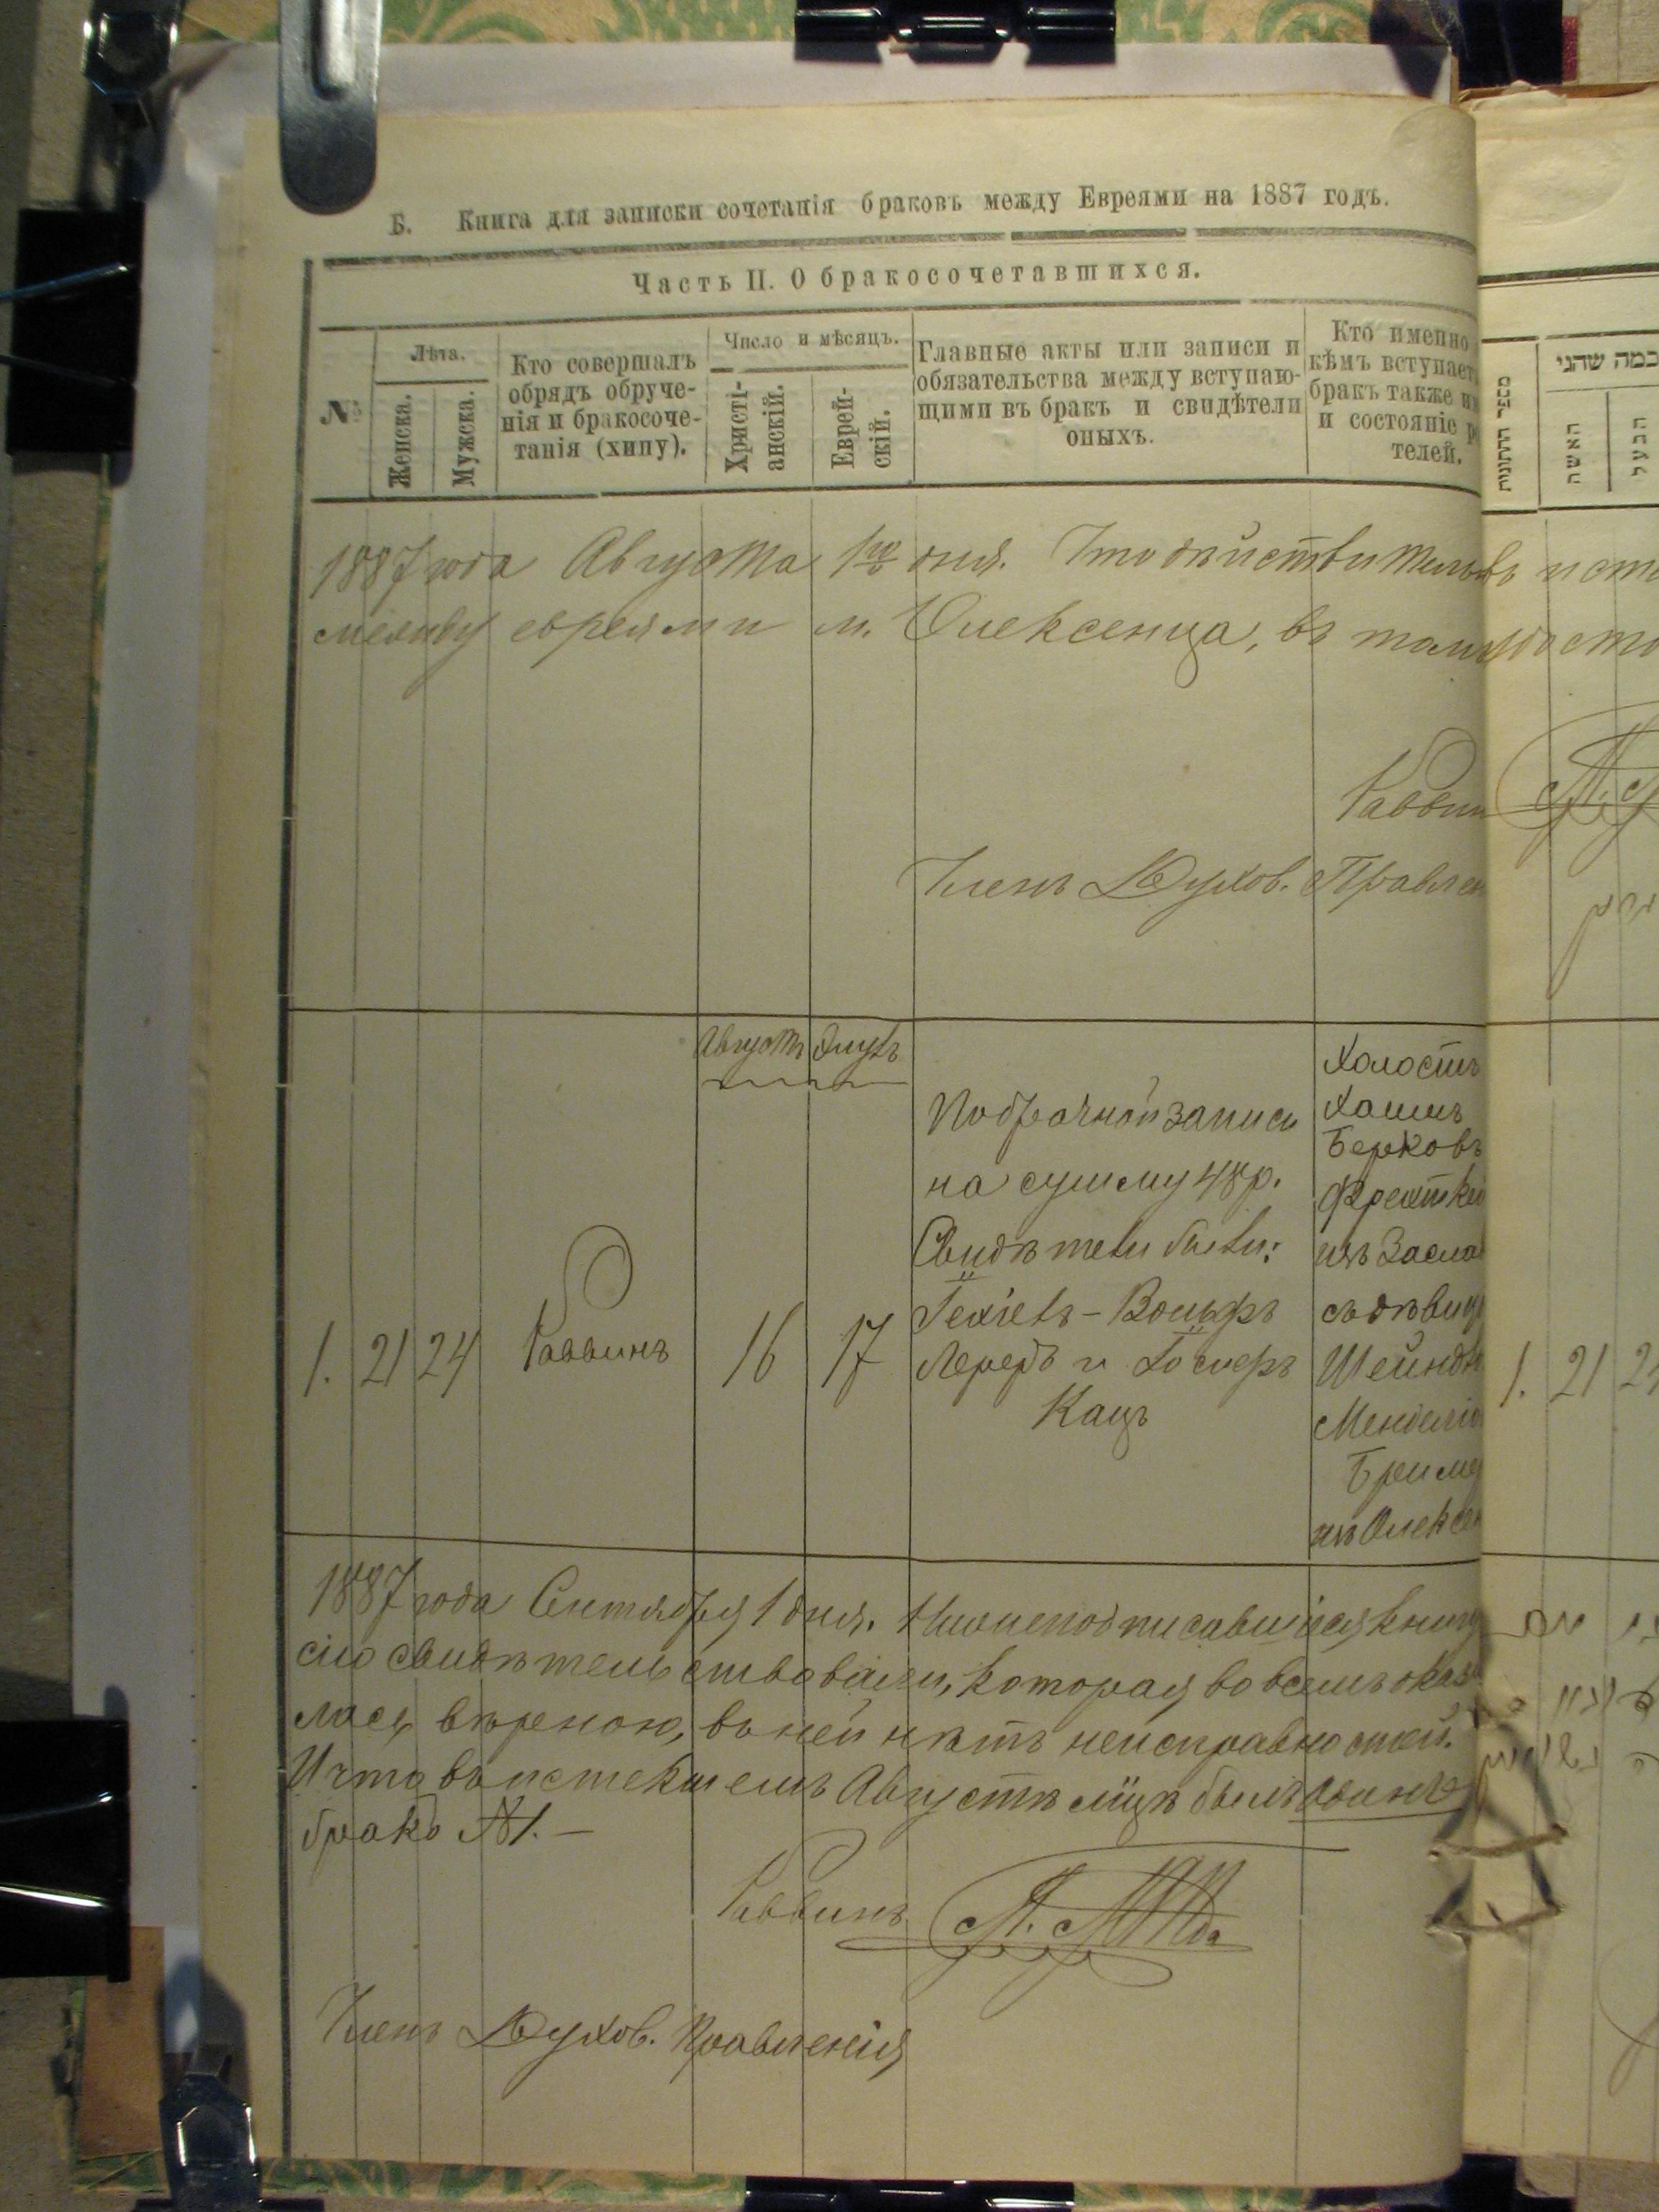 Б. Книга для записки сочетанія браковъ между Евреями на 1887 годъ.
Часть II. О бракосочетавшихся.
№
Лѣта.
Женска.
Мужска.
Кто совершалъ
обрядъ обруче-
нія и бракосоче-
танія (хипу).
Число и мѣсяцъ.
Христі-
анскій.
Еврей-
скій.
Главные акты или записи и
обязательства между вступаю-
щими въ бракъ и свидѣтели
оныхъ.
Кто именно
кѣмъ вступает
бракъ также им
и состояніе р
телей.
1887 года Августа 1го дня. Что дѣйствитель
между евреями м. Олексенца, въ томъ
Раввин
Членъ Духов. Правлен
Августъ
Элулъ
1.
21
24
Раввинъ
16
17
По брачной записи
на сумму 48 р.
Свидѣтели были:
Іехіель-Вольфъ
Лереръ и Іосифъ
Кацъ
Холостъ
Хаимъ
Берковъ
изъ Засла
съ дѣвиц
Шейнд
Мендел
изъ Олексен
1887 года Сентября 1 дня. Нижеподписавшіися книгу
сію свидѣтельствовали, которая во всемъ оказа
лась вѣрною, въ ней нѣтъ неисправностей.
И что въ истекшемъ Августѣ мцѣ былъ одинъ
бракъ №1.—
Раввинъ
Членъ Духов. Правленія
מספר החתונות
כמה שהני
האשה
הבעל
1.
21